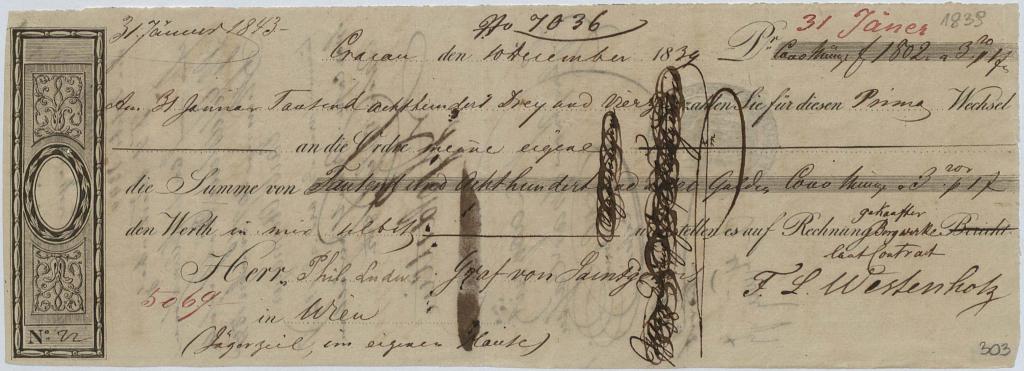 31 Jänner 1843
No 7036
31 Jäner
1839
Cracau den 10 December 1839
Pr Conv Münze f 1802 a 3 20 p 1 f
Am 31 Januar Tausend achthundert Drey und vierzig zahlen Sie für diesen Prima Wechsel
an die Ordre meine eigene
die Summe von Tausend und Achthundert und zwei Gulden Conv Münze a 3 20r p 1 f
den Werth in mir selbst und stellen es auf Rechnung gekaufter Bergwerke Bericht
laut Contract
Herrn Phil. Ludw. Graf von Saint
F. L. Westenholz
5069
in Wien
No 22
(Jägerzeil, im eigenen Hause)
303